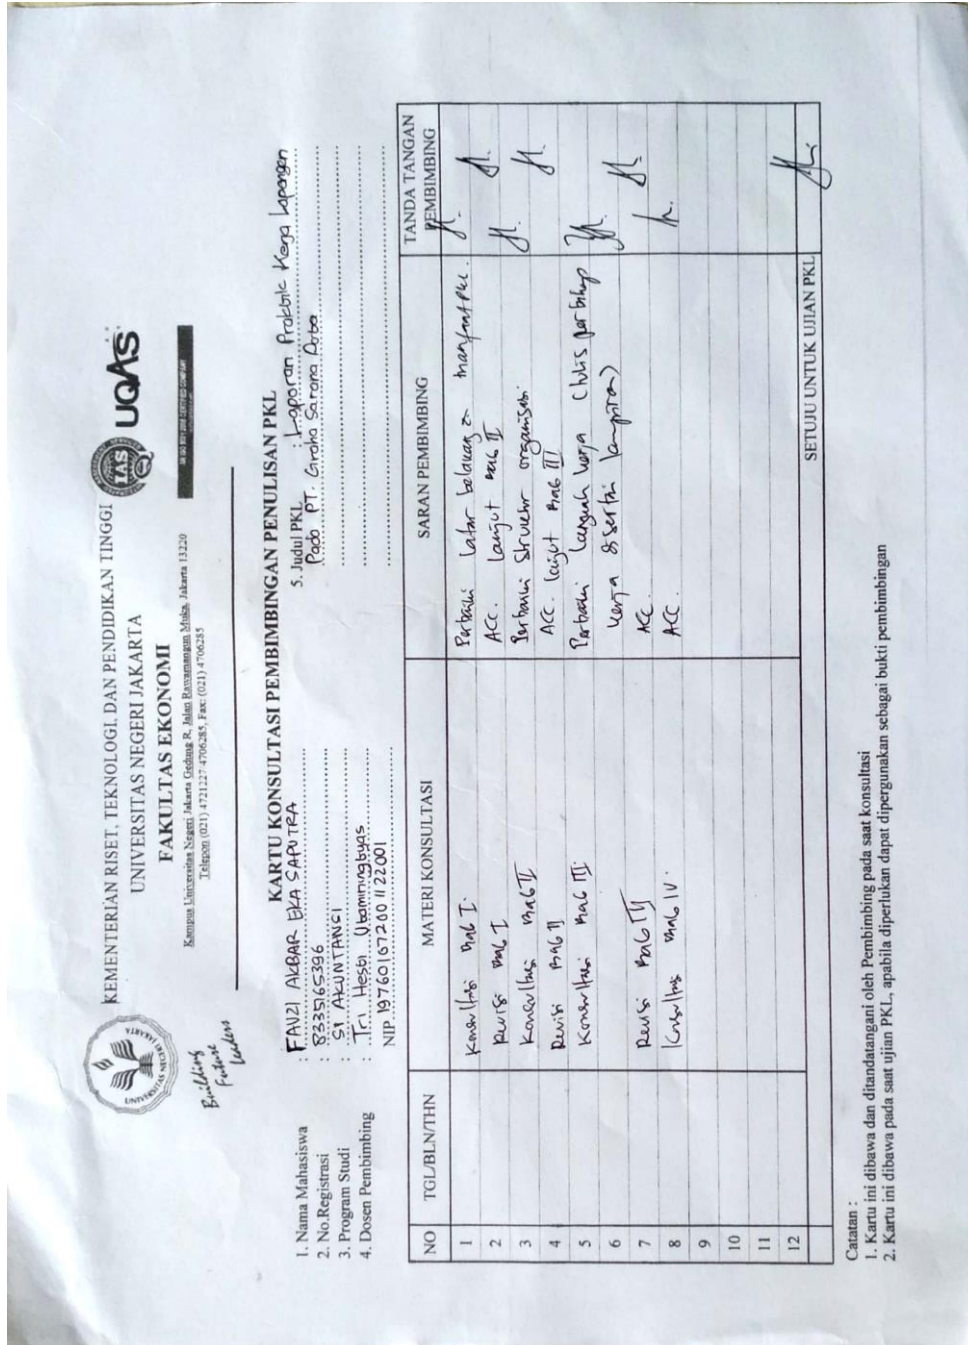 KEMENTERIAN RISET, TEKNOLOGI, DAN PENDIDIKAN TINGGI
UNIVERSITAS NEGERI JAKARTA
FAKULTAS EKONOMI
Kampus Universitas Negeri Jakarta Gedung R, Jalan Rawamangun Muka, Jakarta 13220
Telepon (021) 4721227/4706285, Fax: (021) 4706285
UNIVERSITAS NEGERI JAKARTA
Building
Future
Leaders
TAS
UQAS
KARTU KONSULTASI PEMBIMBINGAN PENULISAN PKL
1. Nama Mahasiswa : FAUZI AKBAR EKA SAPUTRA
2. No.Registrasi : 8335165396
3. Program Studi : S1 AKUNTANSI
4. Dosen Pembimbing : Tri Hesti Utaminingtyas
NIP 197601072001122001
5. Judul PKL : Laporan Praktik Kerja Lapangan
Pada PT. Graha Sarana Duta
NO TGL/BLN/THN MATERI KONSULTASI SARAN PEMBIMBING TANDA TANGAN PEMBIMBING
1 Konsultasi Bab I. Perbaiki latar belakang & manfaat PKL.
2 Revisi Bab I ACC. lanjut Bab II
3 Konsultasi Bab II Perbaiki struktur organisasi.
4 Revisi Bab II ACC. lanjut Bab III
5 Konsultasi Bab III. Perbaiki langkah kerja (tulis per tahap
6 kerja disertai lampiran)
7 Revisi Bab III ACC.
8 Konsultasi Bab IV. ACC.
9
10
11
12
SETUJU UNTUK UJIAN PKL
Catatan :
1. Kartu ini dibawa dan ditandatangani oleh Pembimbing pada saat konsultasi
2. Kartu ini dibawa pada saat ujian PKL, apabila diperlukan dapat dipergunakan sebagai bukti pembimbingan